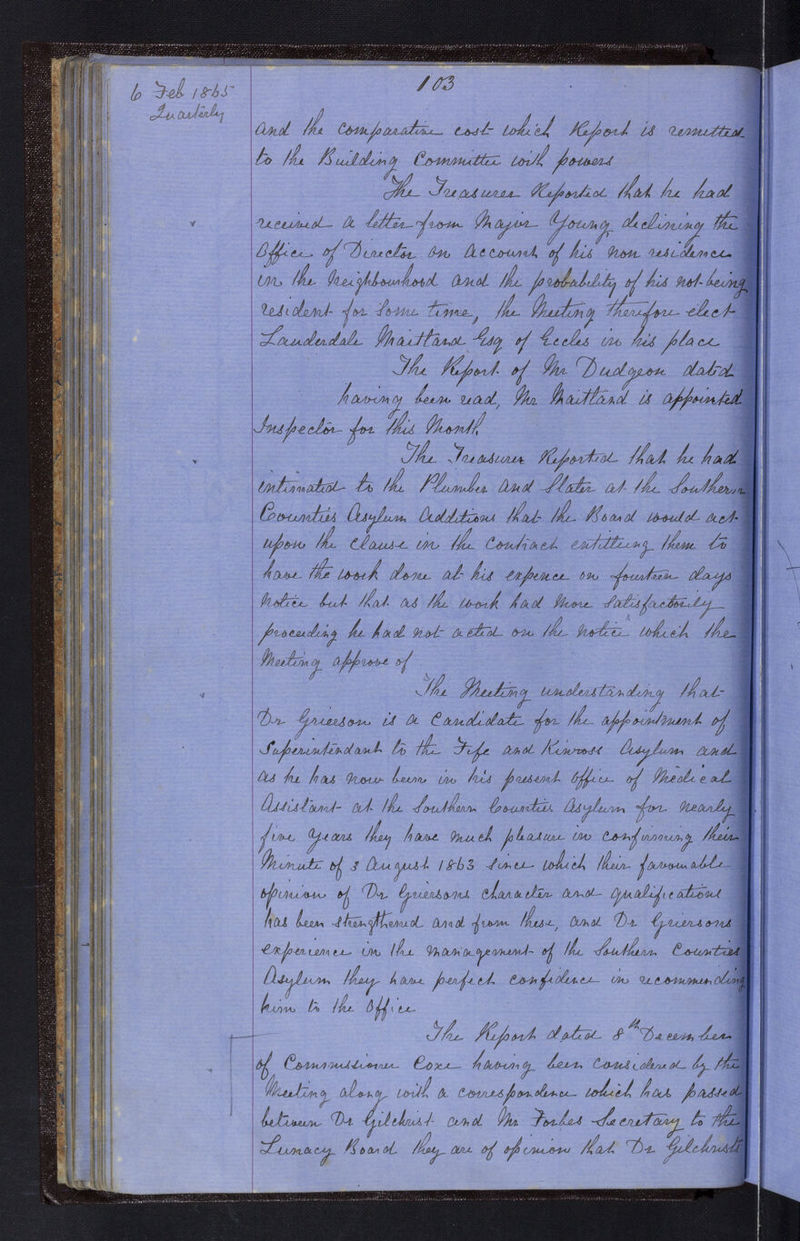 6 Feb 1865
Quarterly
103
and the comparative cost which Report is remitted
to the Building Committee with powers
The Treasurer Reported that he had
received a letter from Major Young declining the
Office of Director on account of his non residence
in the neighbourhood and the probability of his not being
resident for some time, the Meeting therefore elect
Lauderdale Maitland Esq of Eccles in his place
The Report of Mr Dudgeon dated
having been read, Mr Maitland is appointed
Inspector for this Month
The Treasurer Reported that he had
intimated to the Plumber and Slater at the Southern
Counties Asylum Additions that the Board would act
upon the clause in the Contract entitling them to
have the work done at his expence on fourteen days
notice but that as the work had more satisfactorily
proceeding he had not acted on the notice which the
Meeting approve of
The Meeting understanding that
Dr Grierson is a Candidate for the appointment of
Superintendant to the Fife and Kinross Asylum and
as he has now been in his present office of Medical
Assistant at the Southern Counties Asylum for nearly
five years they have much pleasure in confirming their
Minute of 3 August 1863 since which their favourable
opinion of Dr Griersons character and qualifications
has been strengthened and from these, and Dr Griersons
experience in the management of the Southern Counties
Asylum they have perfect confidence in recommending
him to the Office
The Report dated 8th December
of Commissioner Coxe having been considered by the
Meeting along with a correspondence which has passed
between Dr Gilchrist and Mr Forbes Secretary to the
Lunacy Board they are of opinion that Dr Gilchrists